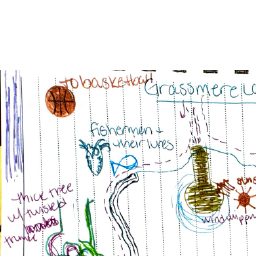 to basketball
Grassmere La
fishermen +
their lures
thick tree
w/ twisted
trunk